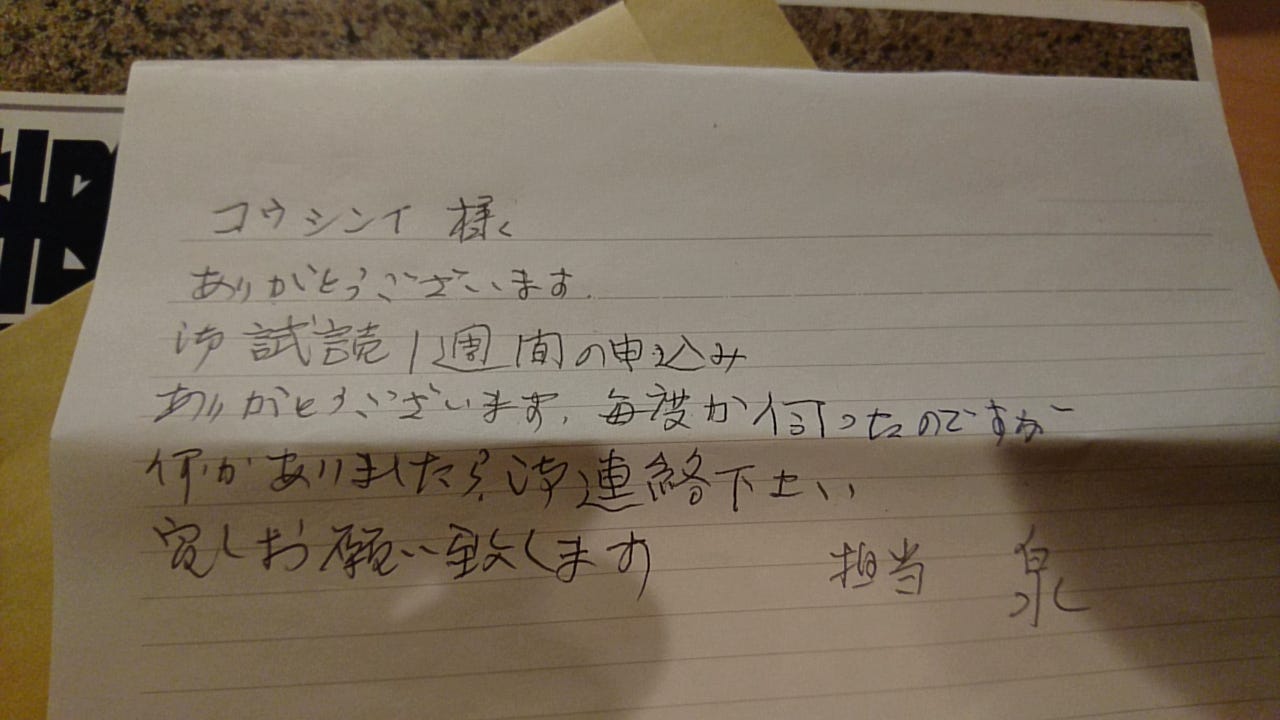 コウシンイ 様
ありがとうございます.
御試読1週間の申込み
ありがとうございます、毎度か伺ったのですが
何かありましたら、御連絡下さい
宜しお願い致します
担当 泉